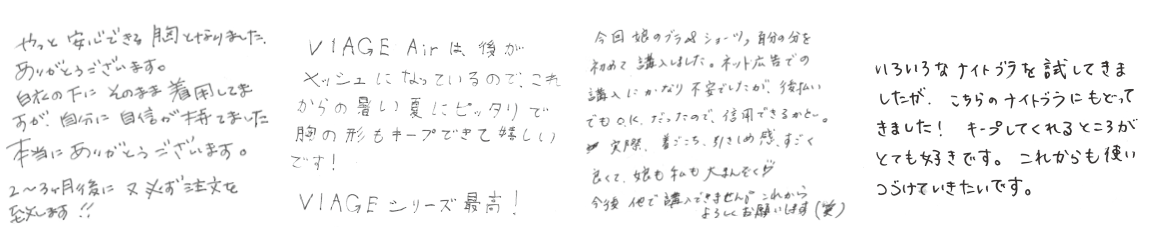 やっと 安心できる 胸となりました。
ありがとうございます。
白衣の下に そのまま 着用してま
すが、自分に 自信が持てました
本当に ありがとうございます。
2～3ヶ月後に 又 必ず 注文を
致します!!
VIAGE Airは 後が
メッシュになっているので、これ
からの暑い夏にピッタリで
胸の形もキープできて嬉しい
です!
VIAGEシリーズ最高!
今回 娘のブラ&ショーツ、自分の分を
初めて 購入しました。ネット広告での
購入に かなり 不安でしたが、後払い
でも O.K. だったので、信用できるかと…。
実際、着ごこち、引きしめ感、すごく
良くて、娘も 私も 大まんぞく
今後 他で 購入できません。これから
よろしくお願いします(笑)
いろいろなナイトブラを試してきま
したが、こちらのナイトブラにもどって
きました! キープしてくれるところが
とても好きです。これからも使い
つづけていきたいです。